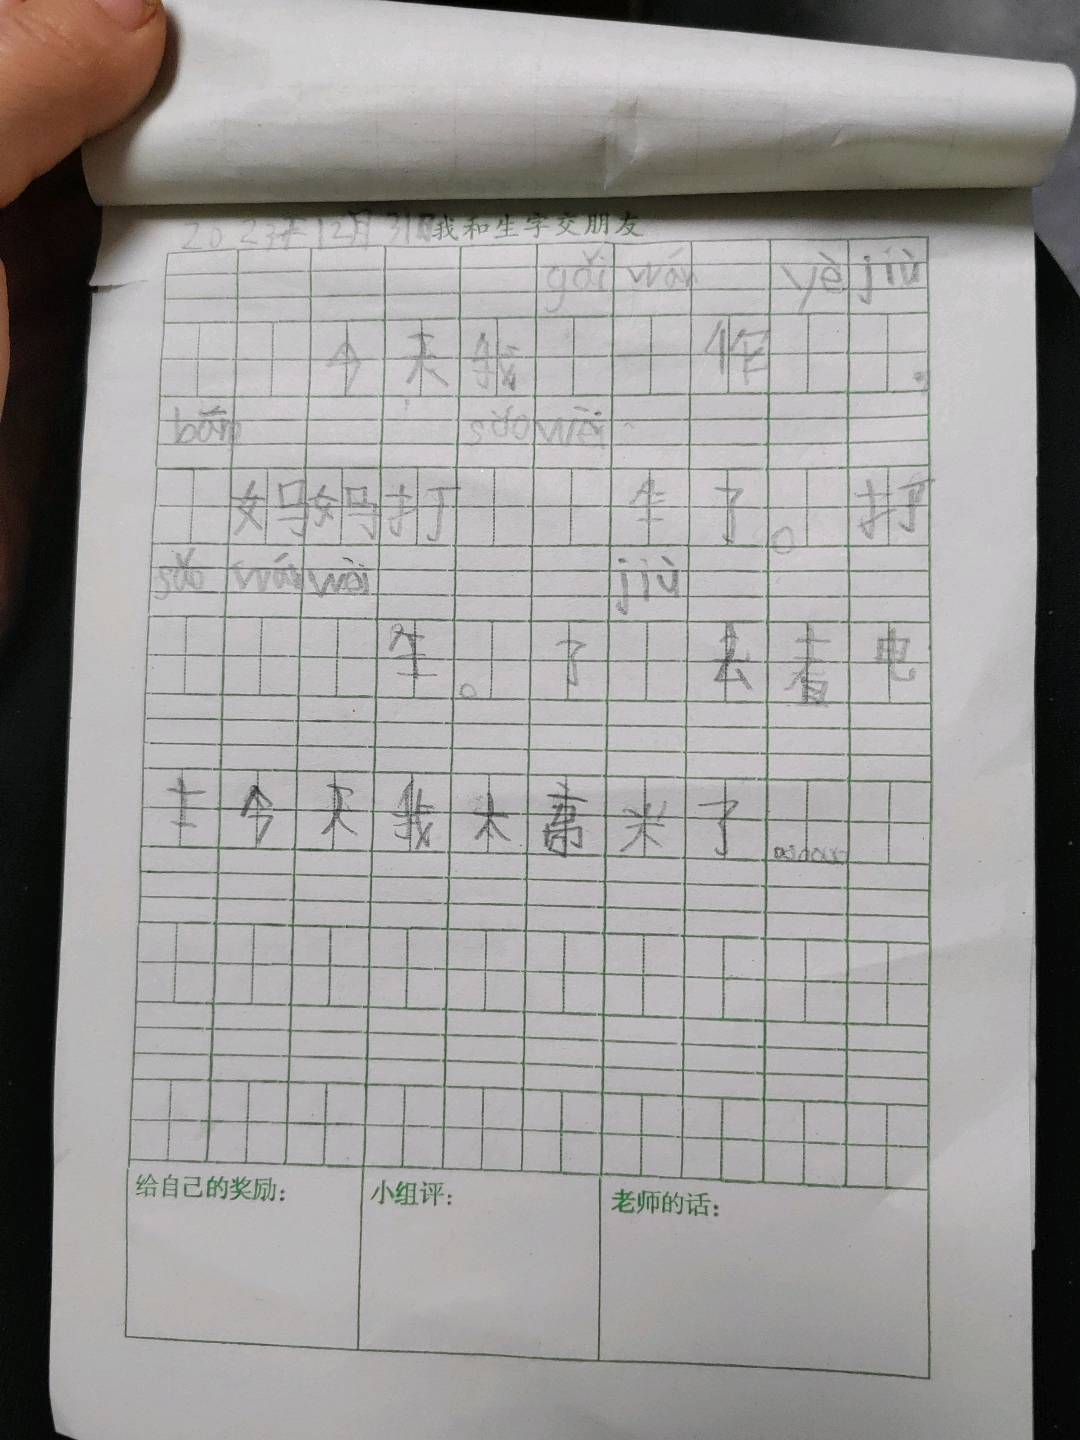 2023年12月31日我和生字交朋友
gǎi wán yè jiù
今天我 作 ，
bāng sǎo wèi
妈妈打 生了。 打
sǎo wán wèi jiù
生。了 去看电
主今天我太高兴了。
给自己的奖励： 小组评： 老师的话：